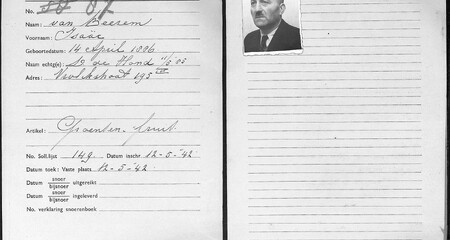 No.
Naam: van Beerem
Voornaam: Isaäc
Geboortedatum: 14 April 1896
Naam echtg(n): S. de Hond
Adres: 195
Artikel: Groenten-fruit.
No. Soll.lijst 149. Datum inschr. 12-5-'42
Datum toek: Vaste plaats 12-5-'42.
Datum snoer/bijsnoer uitgereikt
Datum snoer/bijsnoer ingeleverd
No. verklaring snoerenboek